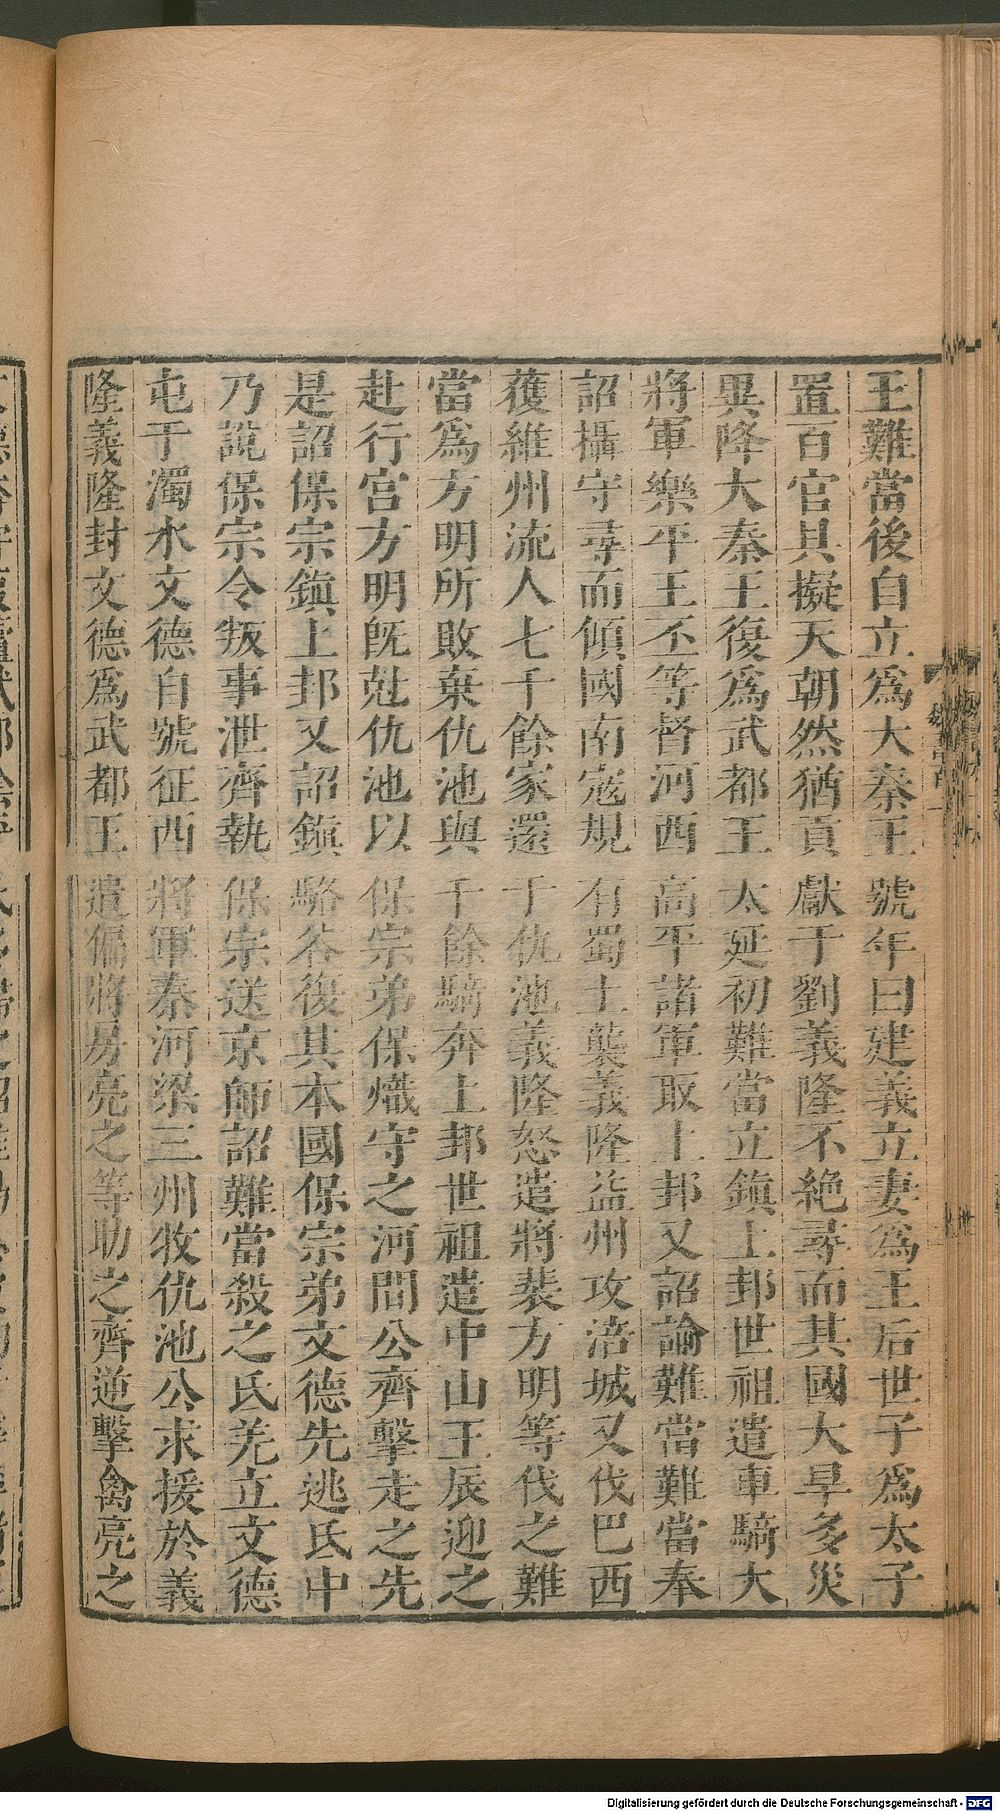 王難當後自立爲大秦王號年曰建義立妻爲王后世子爲太子
置百官具擬天朝然猶貢獻于劉義隆不絶尋而其國大旱多災
異降大秦王復爲武都王太延初難當立鎮上邽世祖遣車騎大
將軍樂平王丕等督河西高平諸軍取上邽又詔諭難當難當奉
詔攝守尋而傾國南寇規有蜀土襲義隆益州攻涪城又伐巴西
獲維州流人七千餘家還于仇池義隆怒遣將裴方明等伐之難
當爲方明所敗棄仇池與千餘騎奔上邽世祖遣中山王辰迎之
赴行宮方明旣尅仇池以保宗弟保熾守之河間公齊擊走之先
是詔保宗鎮上邽又詔鎮駱谷復其本國保宗弟文德先逃氐中
乃說保宗令叛事泄齊執保宗送京師詔難當殺之氐羌立文德
屯于濁水文德自號征西將軍秦河梁三州牧仇池公求援於義
隆義隆封文德爲武都王遣偏將房亮之等助之齊逆擊禽亮之
Digitalisierung gefördert durch die Deutsche Forschungsgemeinschaft - DFG